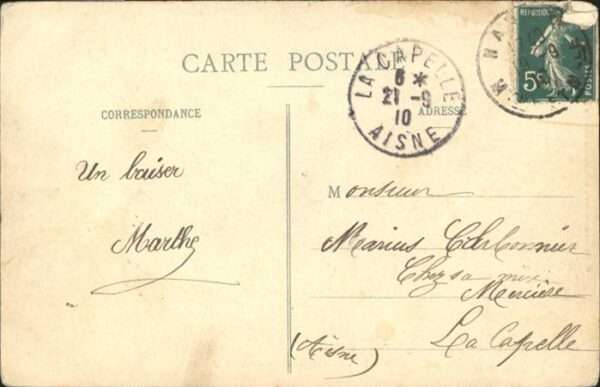 CARTE POSTALE
CORRESPONDANCE
ADRESSE
LA CAPELLE
6 *
21 -9
10
AISNE
RÉPUBLIQUE
5c
POSTES
Un baiser
Marthe
Monsieur
Marius Carbonnier
Chez sa
Mercière
La Capelle
(Aisne)